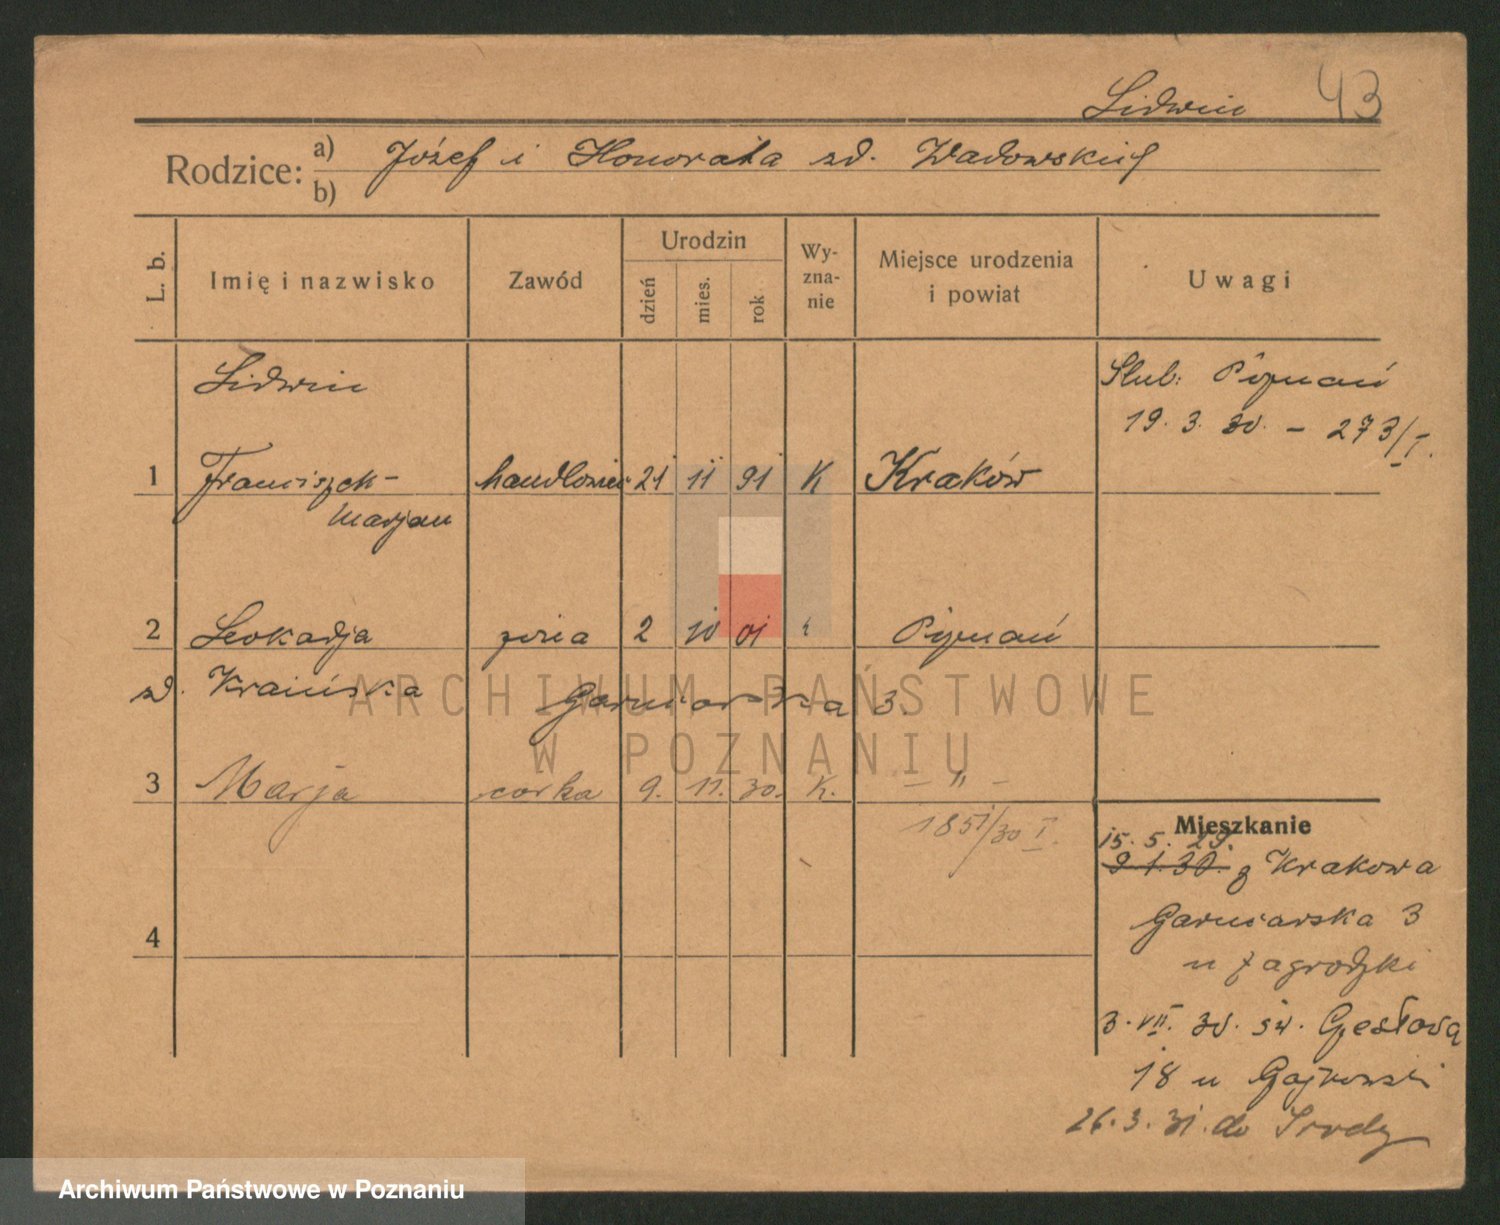 Lidwin 43
Rodzice: a) Józef i Honorata zd. Wadowskich
b)
L. b. Imię i nazwisko Zawód Urodzin dzień mies. rok Wy-zna-nie Miejsce urodzenia i powiat Uwagi
Lidwin
Ślub: Poznań
19. 3. 30. – 273/I.
1 Franciszek- handlowiec 21 11 91 K Kraków
Marjan
2 Leokadja żona 2 10 01 Poznań
zd. Kraińska Garncarska 3.
3 Marja córka 9. 11. 30. K. – " –
1851/30 I.
Mieszkanie
15. 5. 29.
9 1. 30. z Krakowa
Garncarska 3
u Zagrodzki
4
3. VII. 30. św.
18 u
26. 3. 31. do Środy
ARCHIWUM PAŃSTWOWE
W POZNANIU
Archiwum Państwowe w Poznaniu